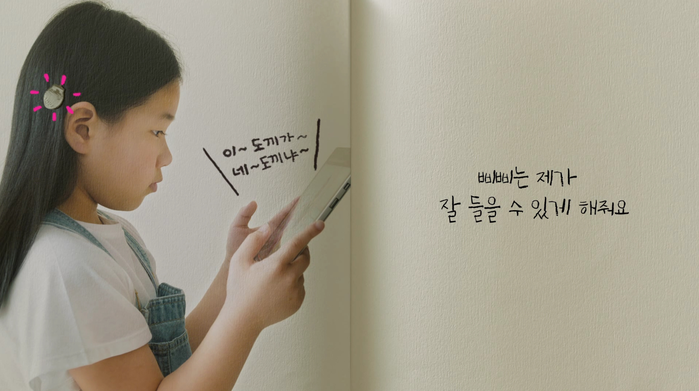 이~ 도끼가~
네~도끼냐~
삐삐는 제가
잘 들을 수 있게 해줘요